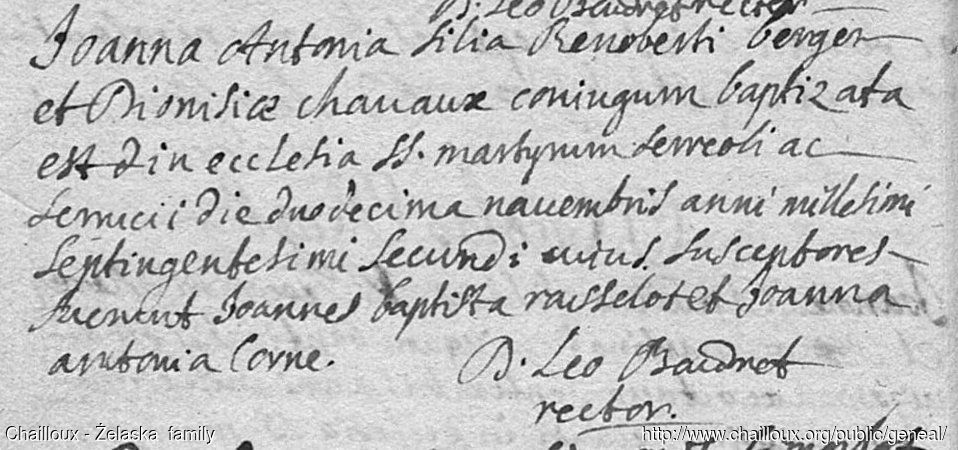 D. Leo Baudret rector
Joanna Antonia filia Renoberti berger
et Dionisiæ chauaux coniugum baptizata
est in ecclesia SS. martyrum ferreoli ac
ferrucii die duodecima nauembris anni millesimi
septingentesimi secundi cuius susceptores
fuerunt Joannes baptista rasselot et Joanna
antonia Corne.
D. Leo Baudret
rector.
Chailloux - Żelaska family
http://www.chailloux.org/public/geneal/